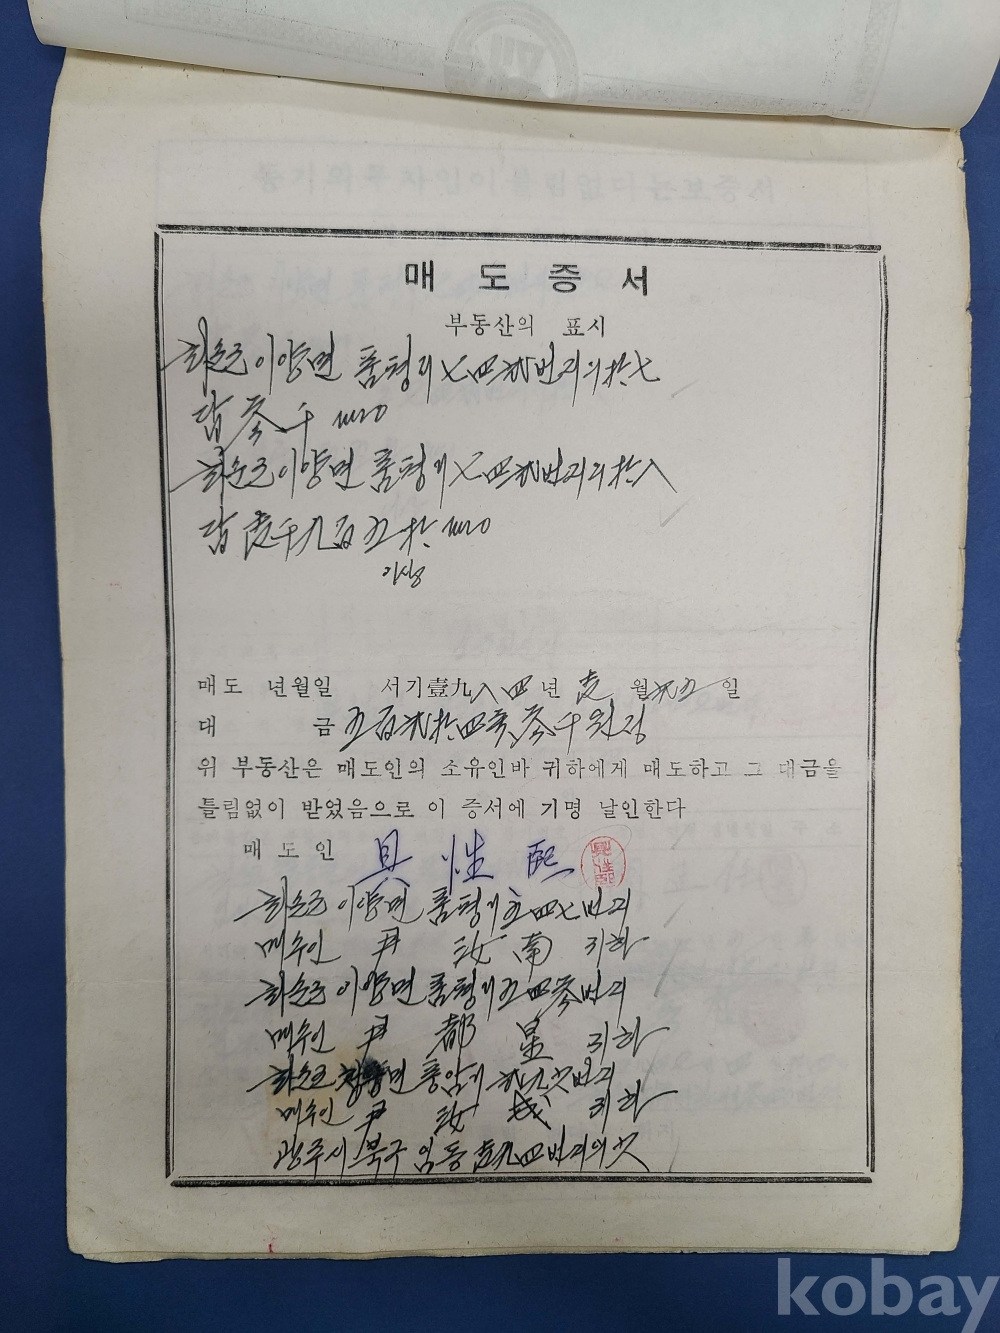 매도증서
부동산의 표시
화순군 이양면 품평리 七四弐번지의 拾七
답 参千㎡
화순군 이양면 품평리 七四弐번지의 拾八
답 壱千九百五拾㎡
이상
매도 년월일 서기 壹九八四년 壱월 弐五일
대 금 五百弐拾四萬参千원정
위 부동산은 매도인의 소유인바 귀하에게 매도하고 그 대금을
틀림없이 받었음으로 이 증서에 기명 날인한다
매도인 具性熙
화순군 이양면 품평리 五四七번지
매수인 尹汝南 귀하
화순군 이양면 품평리 五四参번지
매수인 尹都星 귀하
화순군 면 품암리 번지
매수인 尹汝成 귀하
광주시 북구 임동 壱九四번지의 六
kobay